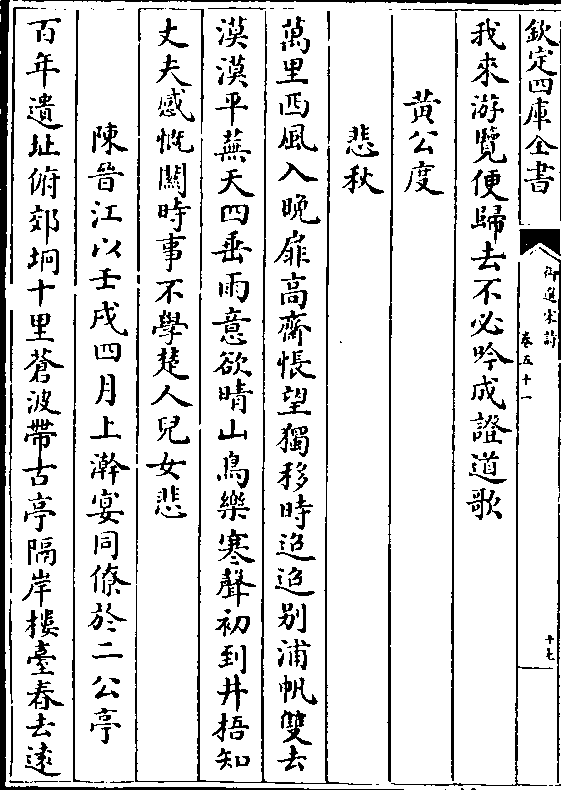 欽定四庫全書
御選宋詩
卷五十一
十七
我來游覽便歸去不必吟成證道歌
黃公度
悲秋
萬里西風入晚扉高齋悵望獨移時迢迢别浦帆雙去
漠漠平蕪天四垂雨意欲晴山鳥樂寒聲初到井梧知
丈夫感慨關時事不學楚人兒女悲
陳晉江以壬戌四月上澣宴同僚於二公亭
百年遺址俯郊坰十里蒼波帶古亭隔岸樓臺春去逺